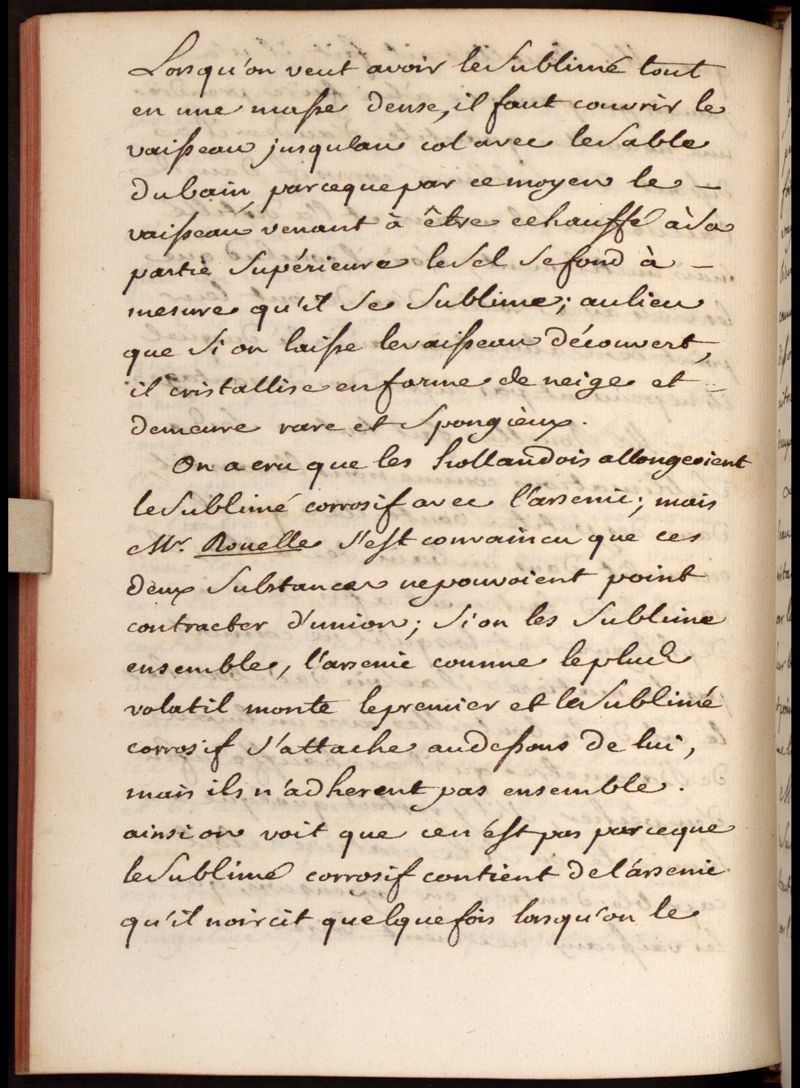 Lorsqu'on veut avoir le Sublimé tout
en une masse dense, il faut couvrir le
vaisseau jusqu'au col avec le Sable
du bain, parceque par ce moyen le –
vaisseau venant à être echauffé à Sa
partie Supérieure le Sel Se fond à –
mesure qu'il Se Sublime; au lieu
que Si on laisse le vaisseau découvert,
il cristallise en forme de neige et –
demeure rare et Spongieux.
On a cru que les hollandois allongeoient
le Sublimé corrosif avec l'arsenic; mais
Mr. Rouelle S'est convaincu que ces
deux Substances ne pouvoient point
contracter d'union; Si on les Sublime
ensemble, l'arsenic comme le plus
volatil monte le premier et le Sublimé
corrosif S'attache au dessous de lui,
mais ils n'adherent pas ensemble.
ainsi on voit que ce n'est pas parceque
le Sublimé corrosif contient de l'arsenic
qu'il noircit quelquefois lorsqu'on le